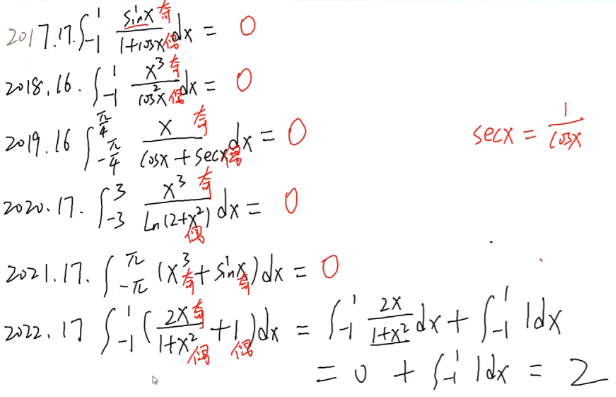 2017.17. ∫₋₁¹ sinx奇/1+cosx偶 dx = 0
2018.16. ∫₋₁¹ x³奇/cos²x偶 dx = 0
2019.16 ∫_{-π/4}^{π/4} x奇/cosx+secx偶 dx = 0 secx = 1/cosx
2020.17. ∫₋₃³ x³奇/Ln(2+x²)偶 dx = 0
2021.17. ∫_{-π}^{π} (x³奇+sinx奇)dx = 0
2022.17 ∫₋₁¹ (2x奇/1+x²偶 + 1偶)dx = ∫₋₁¹ 2x/1+x² dx + ∫₋₁¹ 1dx
= 0 + ∫₋₁¹ 1dx = 2